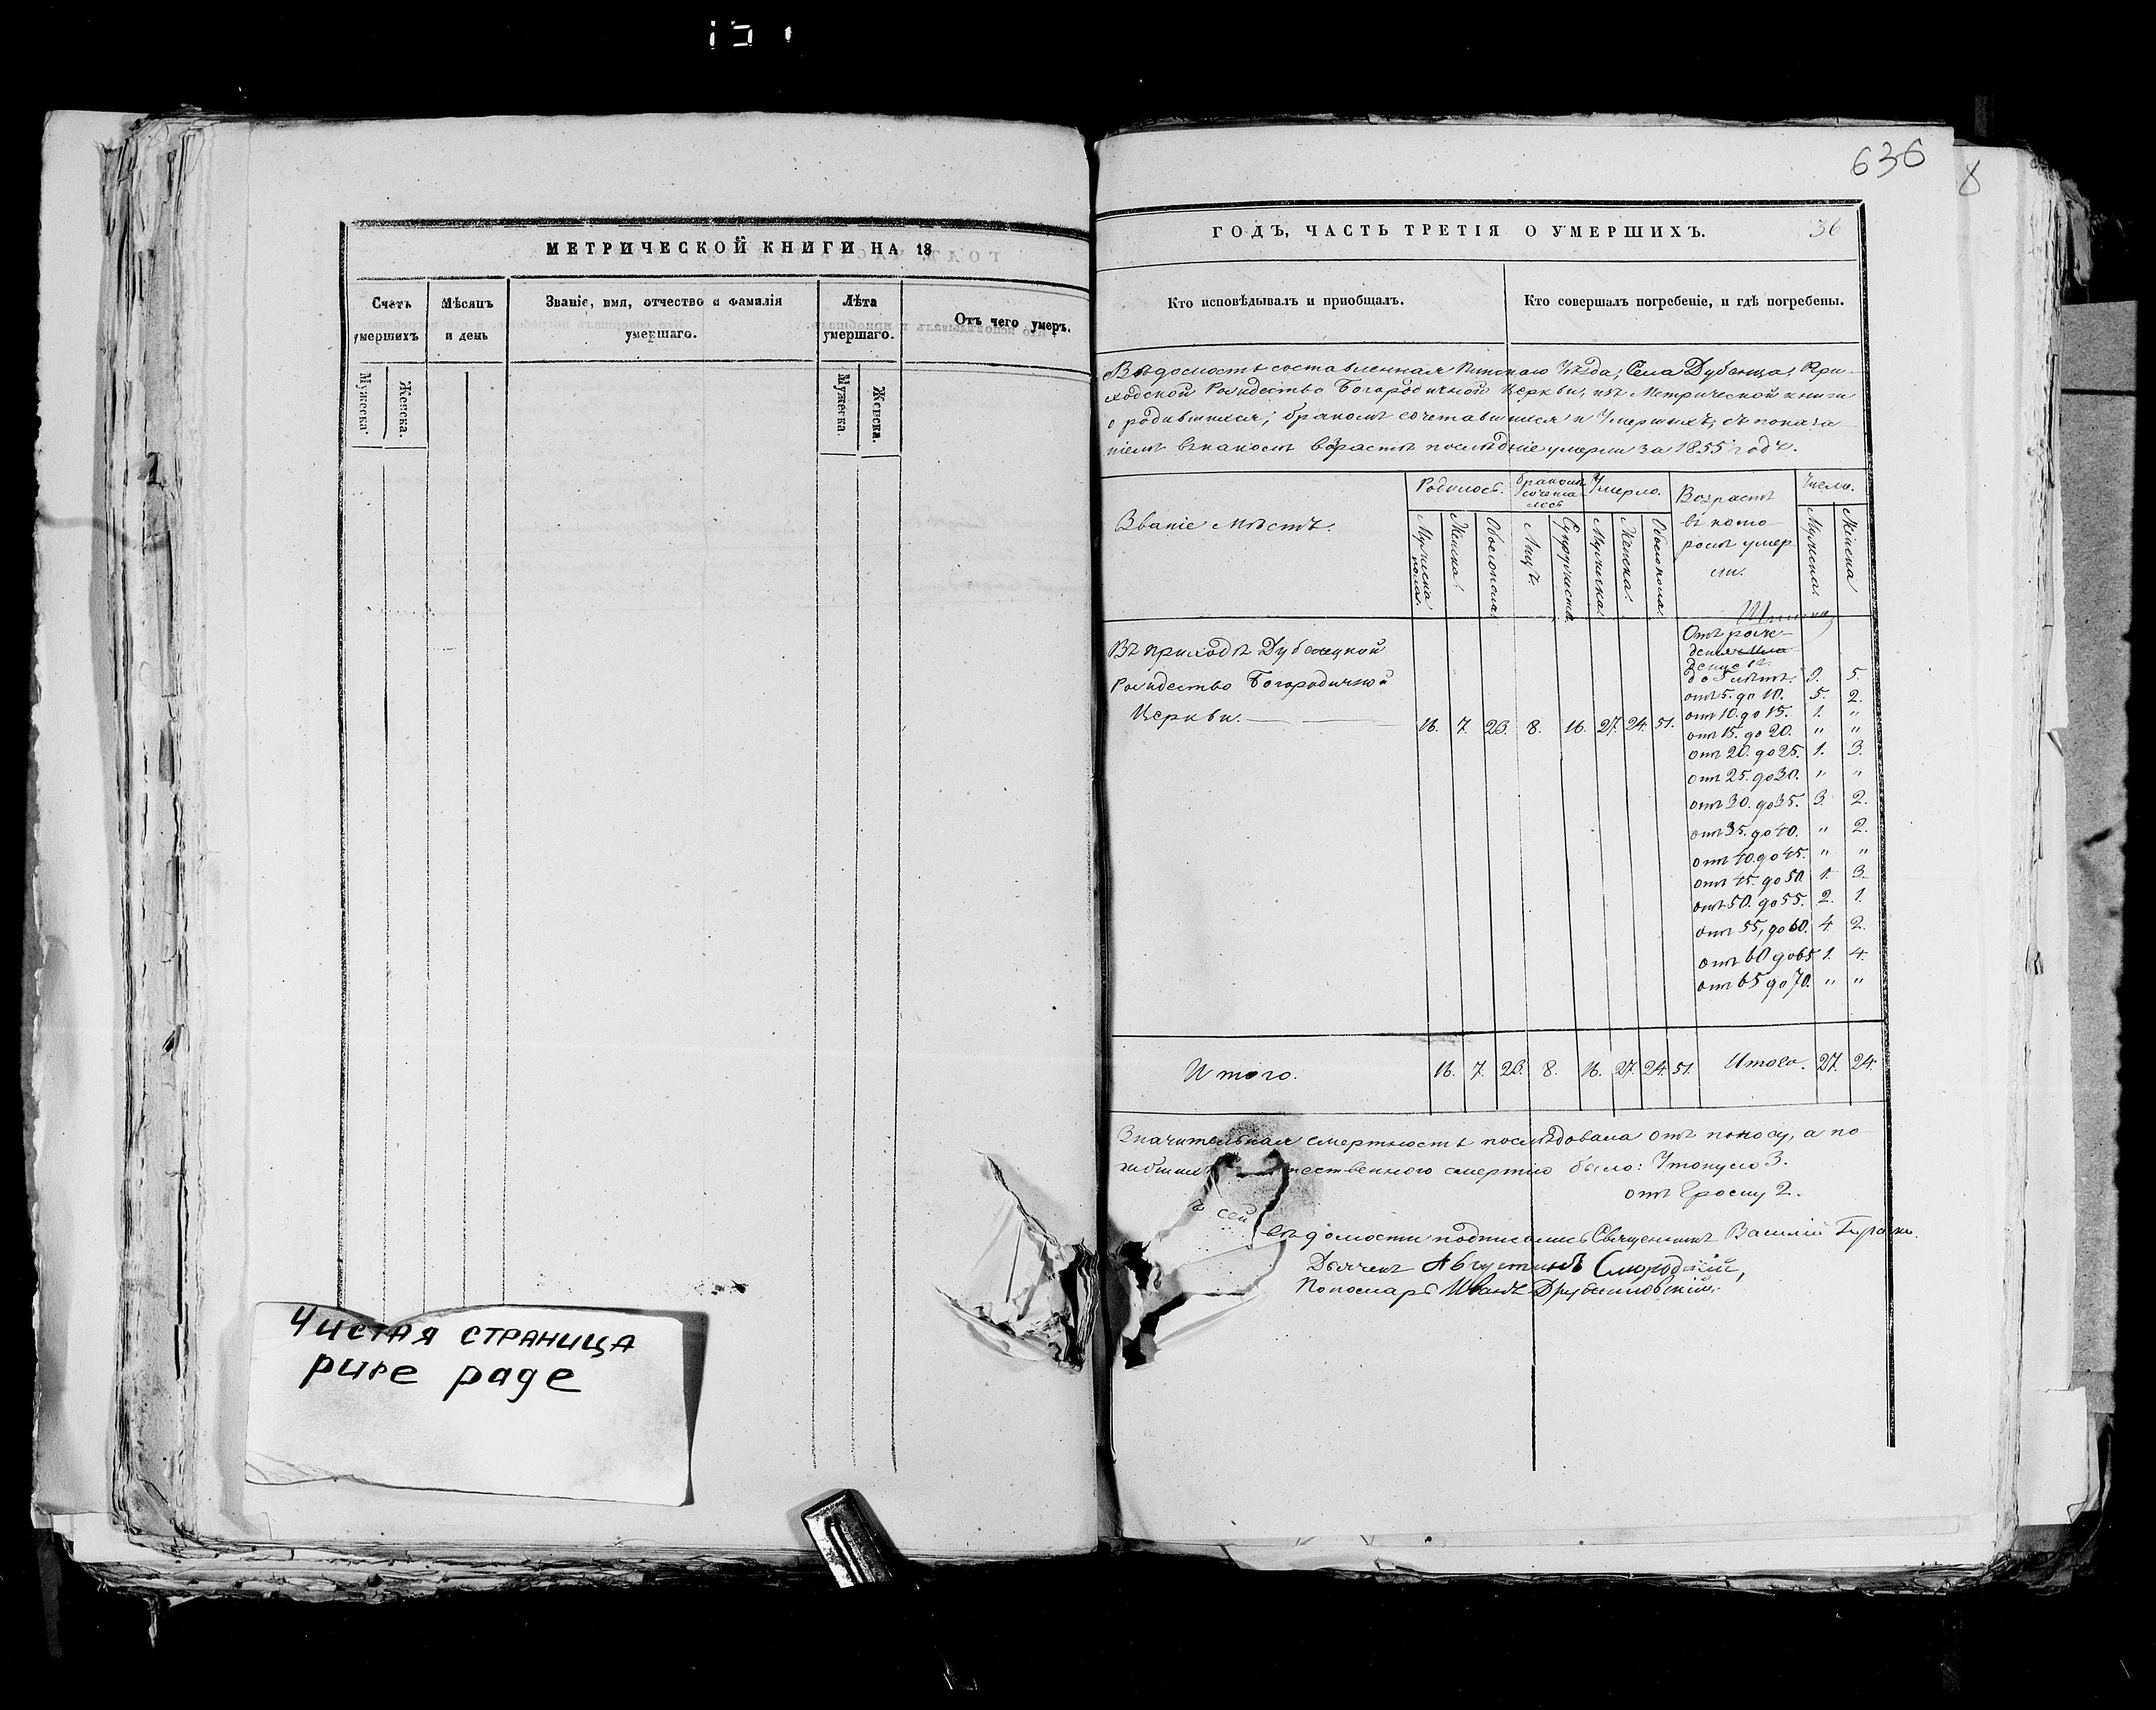 МЕТРИЧЕСКОЙ КНИГИ НА 18
Счетъ умершихъ
Мѣсяцъ и день
Званіе, имя, отчество и фамилія умершаго.
Лѣта умершаго.
Отъ чего умеръ.
Мужеска.
Женска.
Мужеска.
Женска.
Чистая страница
pure page
636
8
ГОДЪ, ЧАСТЬ ТРЕТІЯ О УМЕРШИХЪ.
36
Кто исповѣдывалъ и пріобщалъ.
Кто совершалъ погребеніе, и гдѣ погребены.
Вѣдомость составленная Пинскаго Уѣзда, Села Дубенца, При-
ходской Рождество Богородичной Церкви, изъ Метрической книги
о родившихся, бракомъ сочетавшихся и Умершихъ, съ показа
ніемъ въ какомъ возрастѣ послѣдніе умерли за 1855 годъ.
Званіе мѣстъ.
Родилось.
Бракомъ сочета лось
Умерло.
Возрастъ въ кото- ромъ умер ли.
Число.
Мужеска пола.
Женска.
Обоего пола.
Лицъ.
Супружествъ.
Мужеска.
Женска.
Обоего пола.
Мужеска.
Женска
Въ приходѣ Дубенецкой
Рождество Богородичной
Церкви.
16. 7. 23. 8. 16. 27. 24. 51.
Отъ рож-
денія
до 5 лѣтъ. 9. 5.
отъ 5. до 10. 5. 2.
отъ 10. до 15. 1. "
отъ 15. до 20. " "
отъ 20. до 25. 1. 3.
отъ 25. до 30. " "
отъ 30. до 35. 3. 2.
отъ 35. до 40. " 2.
отъ 40. до 45. " "
отъ 45. до 50. 1. 3.
отъ 50. до 55. 2. 1.
отъ 55, до 60. 4 2.
отъ 60 до 65 1. 4.
отъ 65 до 70. " "
Итого. 16. 7. 23. 8. 16. 27. 24. 51. Итого. 27. 24.
Значительная смертность послѣдовала отъ поносу, а по
ественного смертію было: Утонуло 3.
отъ 2.
сей
вѣдомости подписались Священникъ Василій
Дьячекъ Августинъ Смородскій,
Пономарь Иванъ